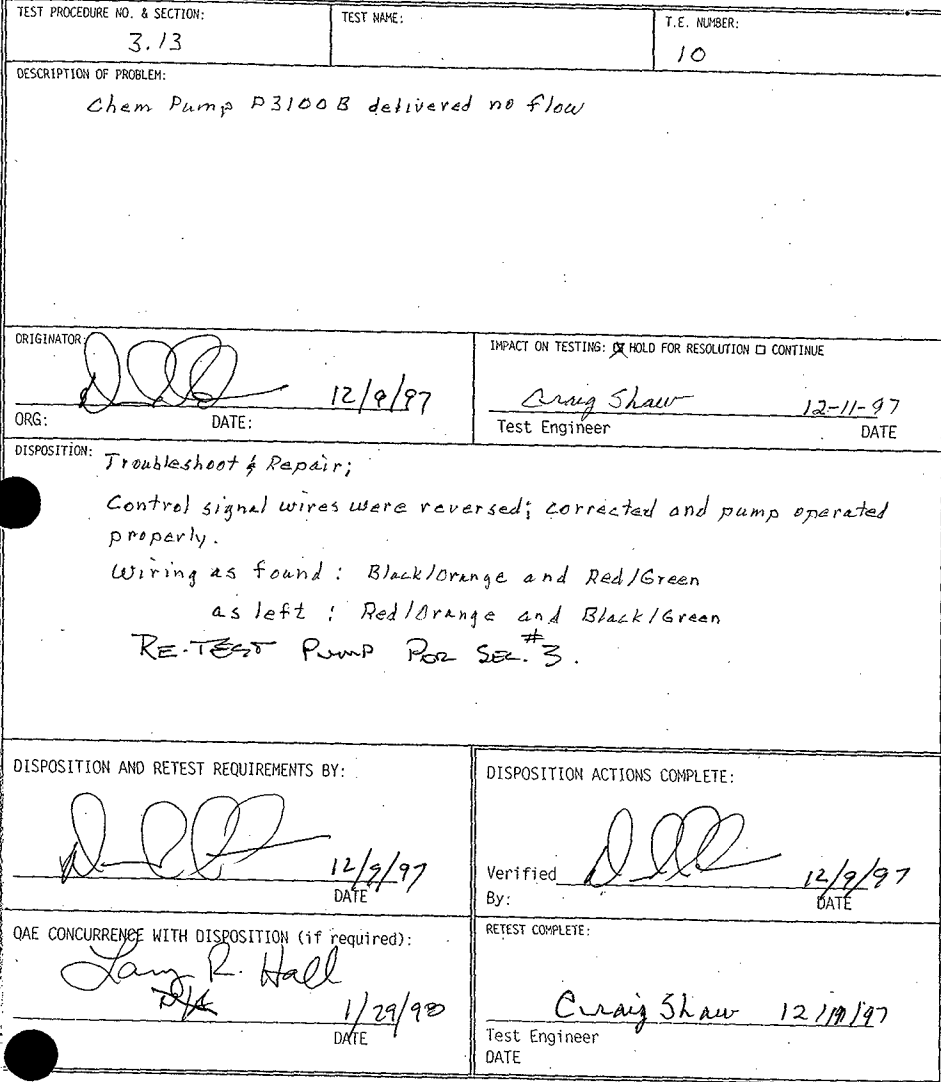 TEST PROCEDURE NO. & SECTION:
3.13
TEST NAME:
T.E. NUMBER:
10
DESCRIPTION OF PROBLEM:
Chem Pump P3100B delivered no flow
ORIGINATOR:
12/9/97
ORG: DATE:
IMPACT ON TESTING: ☒ HOLD FOR RESOLUTION ☐ CONTINUE
Craig Shaw 12-11-97
Test Engineer DATE
DISPOSITION: Troubleshoot & Repair;
Control signal wires were reversed; corrected and pump operated
properly.
Wiring as found : Black/Orange and Red/Green
as left : Red/Orange and Black/Green
RE-TEST PUMP PER SEC. #3.
DISPOSITION AND RETEST REQUIREMENTS BY:
12/9/97
DATE
DISPOSITION ACTIONS COMPLETE:
Verified 12/9/97
By: DATE
QAE CONCURRENCE WITH DISPOSITION (if required):
Larry R. Hall
N/A
1/29/98
DATE
RETEST COMPLETE:
Craig Shaw 12/ /97
Test Engineer
DATE